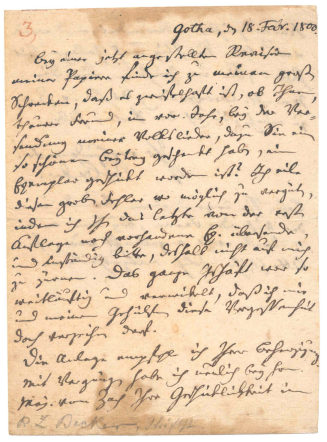 3
Gotha, d. 18. Febr. 1800.
bey einer jetzt angestellten Revision
meiner Papiere finde ich zu meinem groß
Schrecken, daß es zweifelhaft ist, ob Ihnen,
theurer Freund, im vor. Jahr, bey der Ver-
sendung meiner Volkslieder, dazu Sie ein
so schönen Beytrag geschenkt haben, ein
Exemplar geschickt worden ist! Ich eile
diesen groben Fehler wo möglich zu vergüten,
indem ich Ihnen das letzte von der erst
Auflage noch vorhandene Ex. übersende
und inständig bitte, deshalb nicht auf mich
zu zürnen. Das ganze Geschäft war so
weitläuftig und verwickelt, daß ich mir
und meinen Gehülfen diese Vergessenheit
doch verzeihen darf.
Die Anlage empfehl ich Ihrer Beherzigung
Mit Vergnügen habe ich neulich bey Hrn.
Maj. von Zach Ihre Geschicklichkeit im
R. Z. Becker